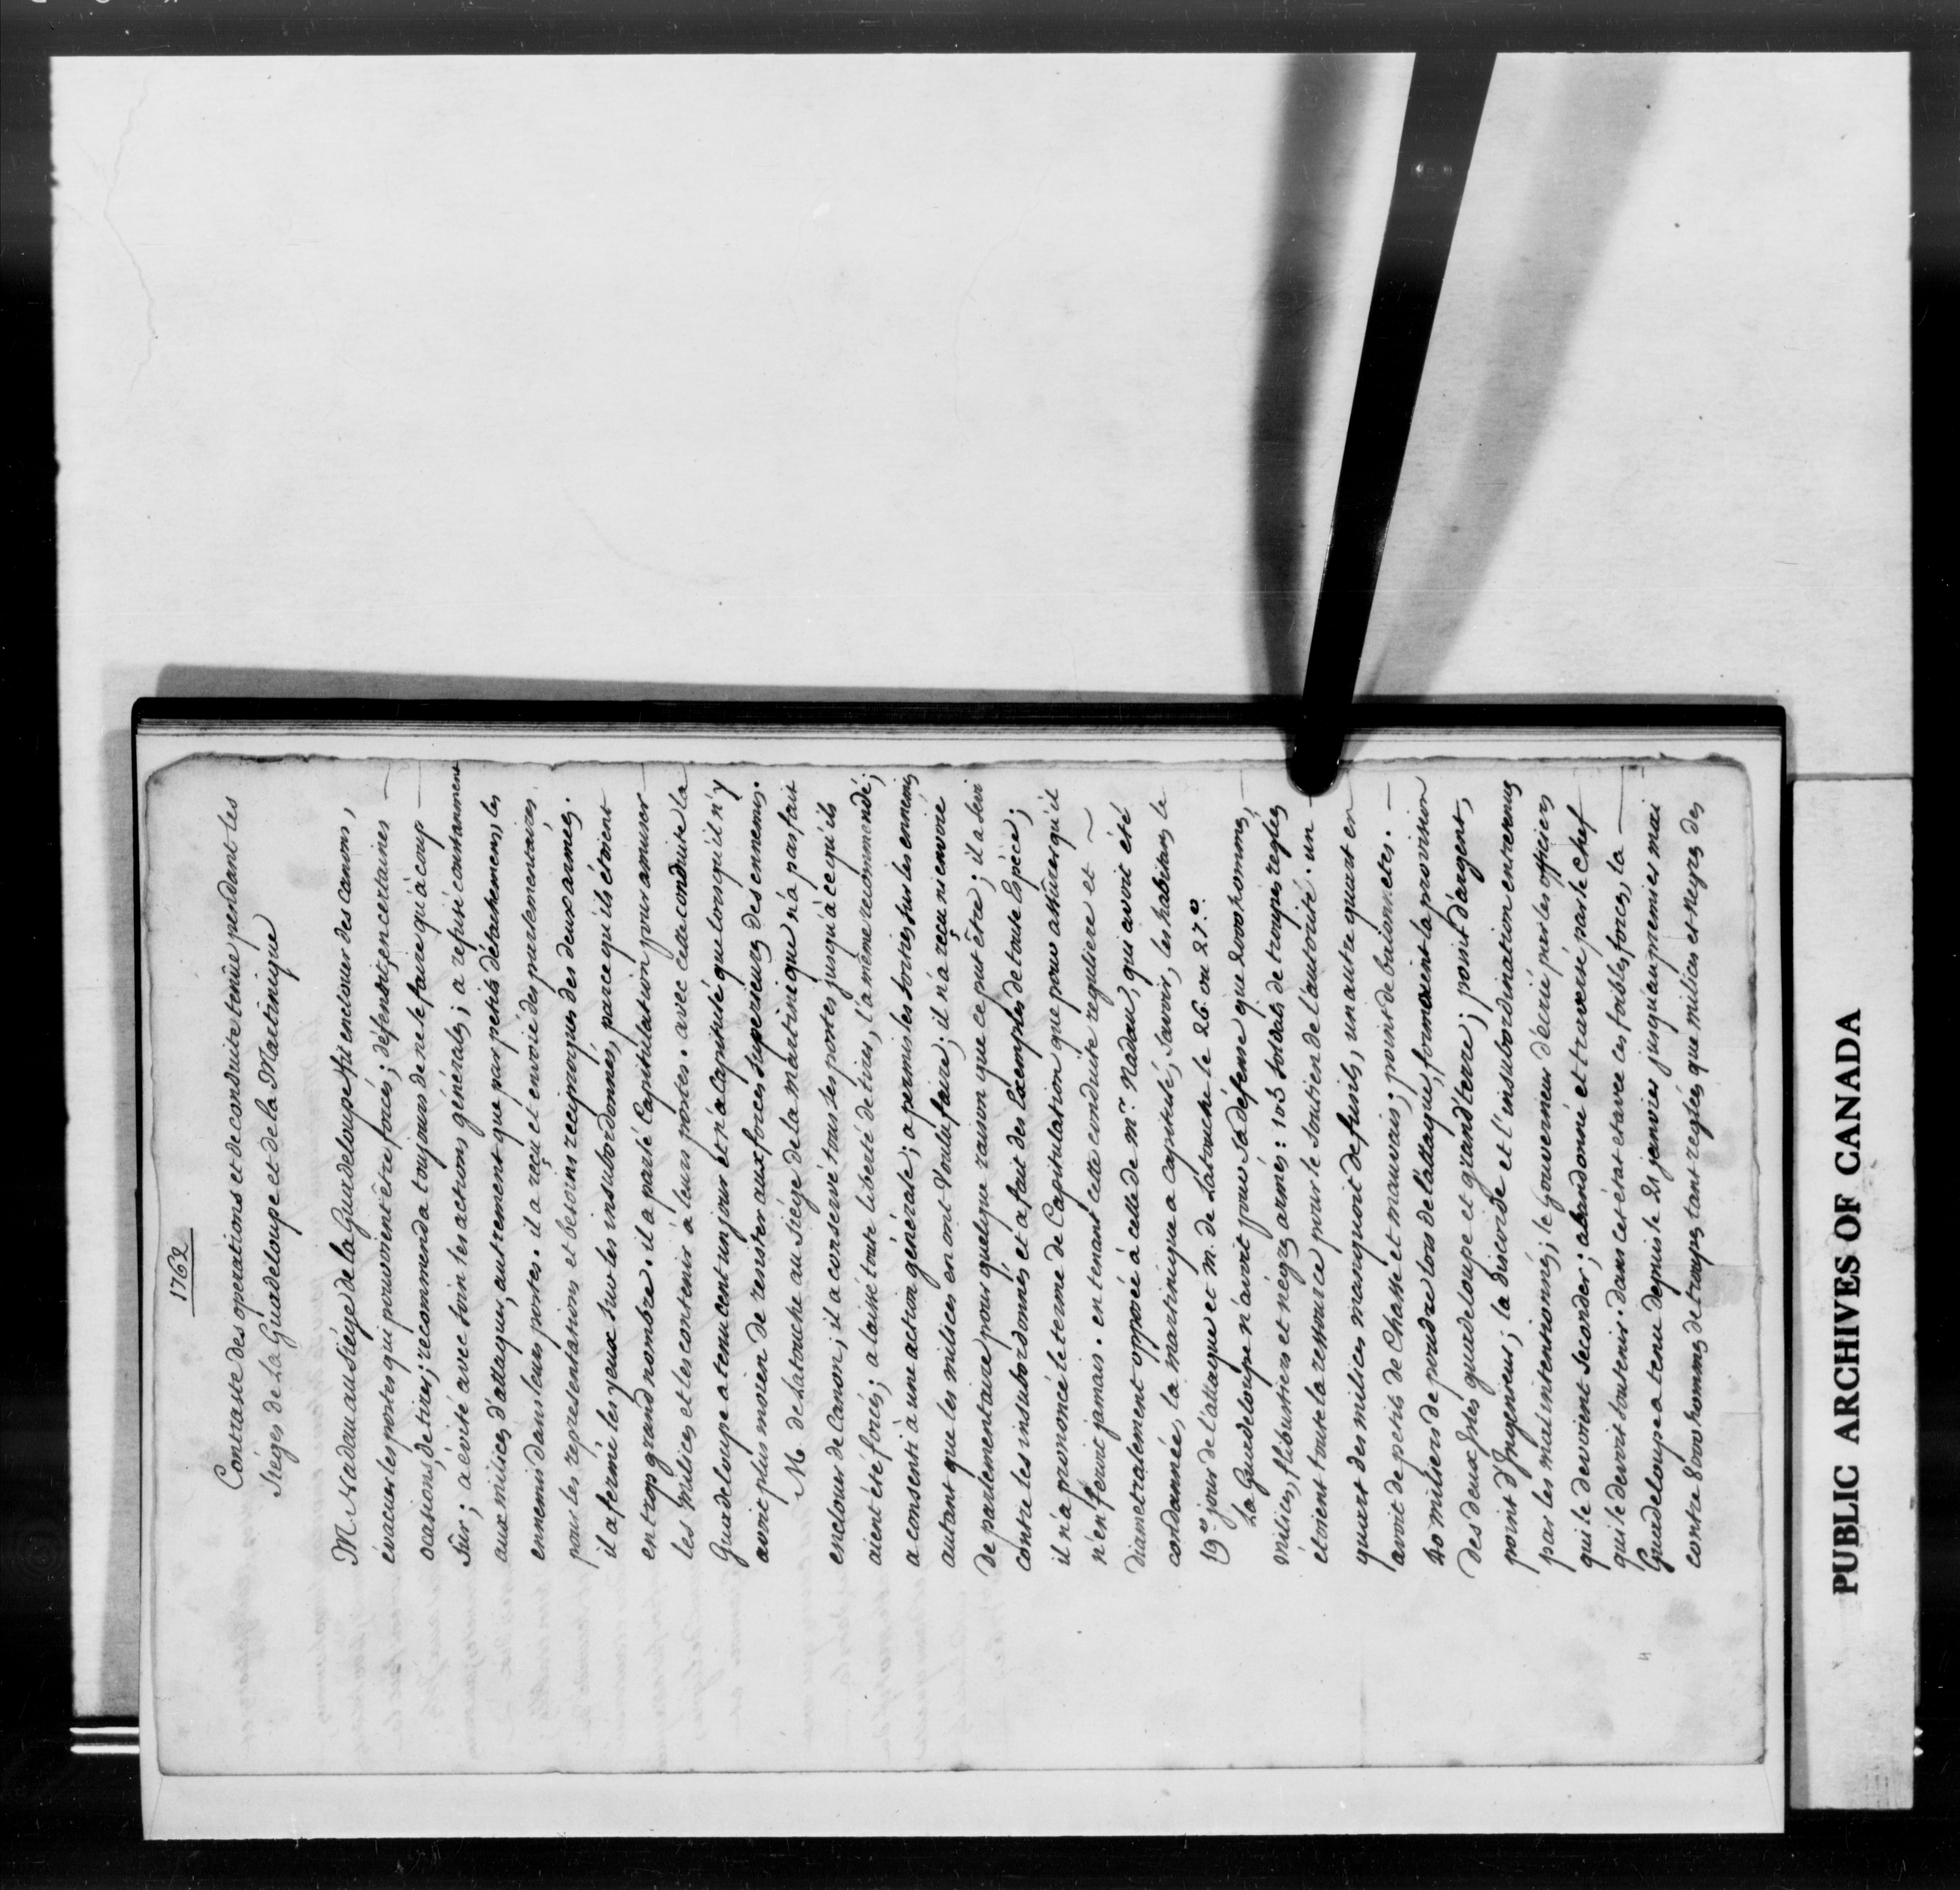 1762
Contraste des operations et de conduite tenüe pendant les
Siéges de La Guadeloupe et de la Martinique
M. Nadau au Siége de la Guadeloupe fit enclouer des canons,
évacuer les postes qui pouvoient être forcés; défendit, en certaines
ocations, de tirer; recommenda toujours de ne le faire qu'à coup
Sûr; a évité avec soin les actions générales; a refusé constamment
aux milices d'attaquer, autrement que par petits détachemens, les
ennemis dans leurs postes. il a reçu et envoié des parlementaires
pour les representations et besoins reciproques des deux armées.
il a fermé les yeux sur les insubordonnés, parce qu'ils étoient
en trop grand nombre. il a parlé Capitulation pour amuser
les Milices et les contenir à leurs postes. avec cette conduite la
Guadeloupe a tenu cent un jour et n'a Capitulé que lorsqu'il n'y
avoit plus moien de resister aux forces superieures des ennemis.
M. de Latouche au Siége de la Martinique n'a pas fait
enclouer de Canon; il a conservé tous les postes jusqu'à ce qu'ils
aient été forcés; a laissé toute liberté de tirer, l'a même recommendé;
a consenti à une action générale; a permis les sorties sur les ennemis
autant que les milices en ont Voulu faire; il n'a reçu ni envoié
de parlementaire pour quelque raison que ce put être; il a sevi
contre les insubordonnés et a fait des Exemples de toute Espéce;
il n'a prononcé le terme de Capitulation que pour assûrer qu'il
n'en feroit jamais. en tenant cette conduite reguliere et
Diametralement opposée à celle de Mr. Nadau, qui avoit été
condamnée, la martinique a capitulé, Savoir, les habitans le
19e jour de l'attaque et M. de Latouche le 26 ou 27e.
La Guadeloupe n'avoit pour Sa défense que 2000 hommes,
milices, flibustiers et négres armés: 103 Soldats de troupes reglées
étoient toute la ressource pour le Soutien de l'autorité. un
quart des milices manquoit de fusils, un autre quart en
avoit de petits de Chasse et mauvais; point de baionnetes.
40 milliers de poudre lors de l'attaque, formoient la provision
des deux Isles guadeloupe et grand'terre; point d'argent,
point d'Ingenieur; la discorde et l'insubordination entretenues
par les mal intentionnés; le gouverneur décrié par les officiers
qui le devoient Seconder; abandonné et traversé par le Chef
qui le devoit Soutenir. dans cet état et avec ces foibles forces, la
Guadeloupe a tenue depuis le 21 janvier jusqu'au premier mai
contre 8000 hommes de troupes tant reglées que milices et negres des
PUBLIC ARCHIVES OF CANADA